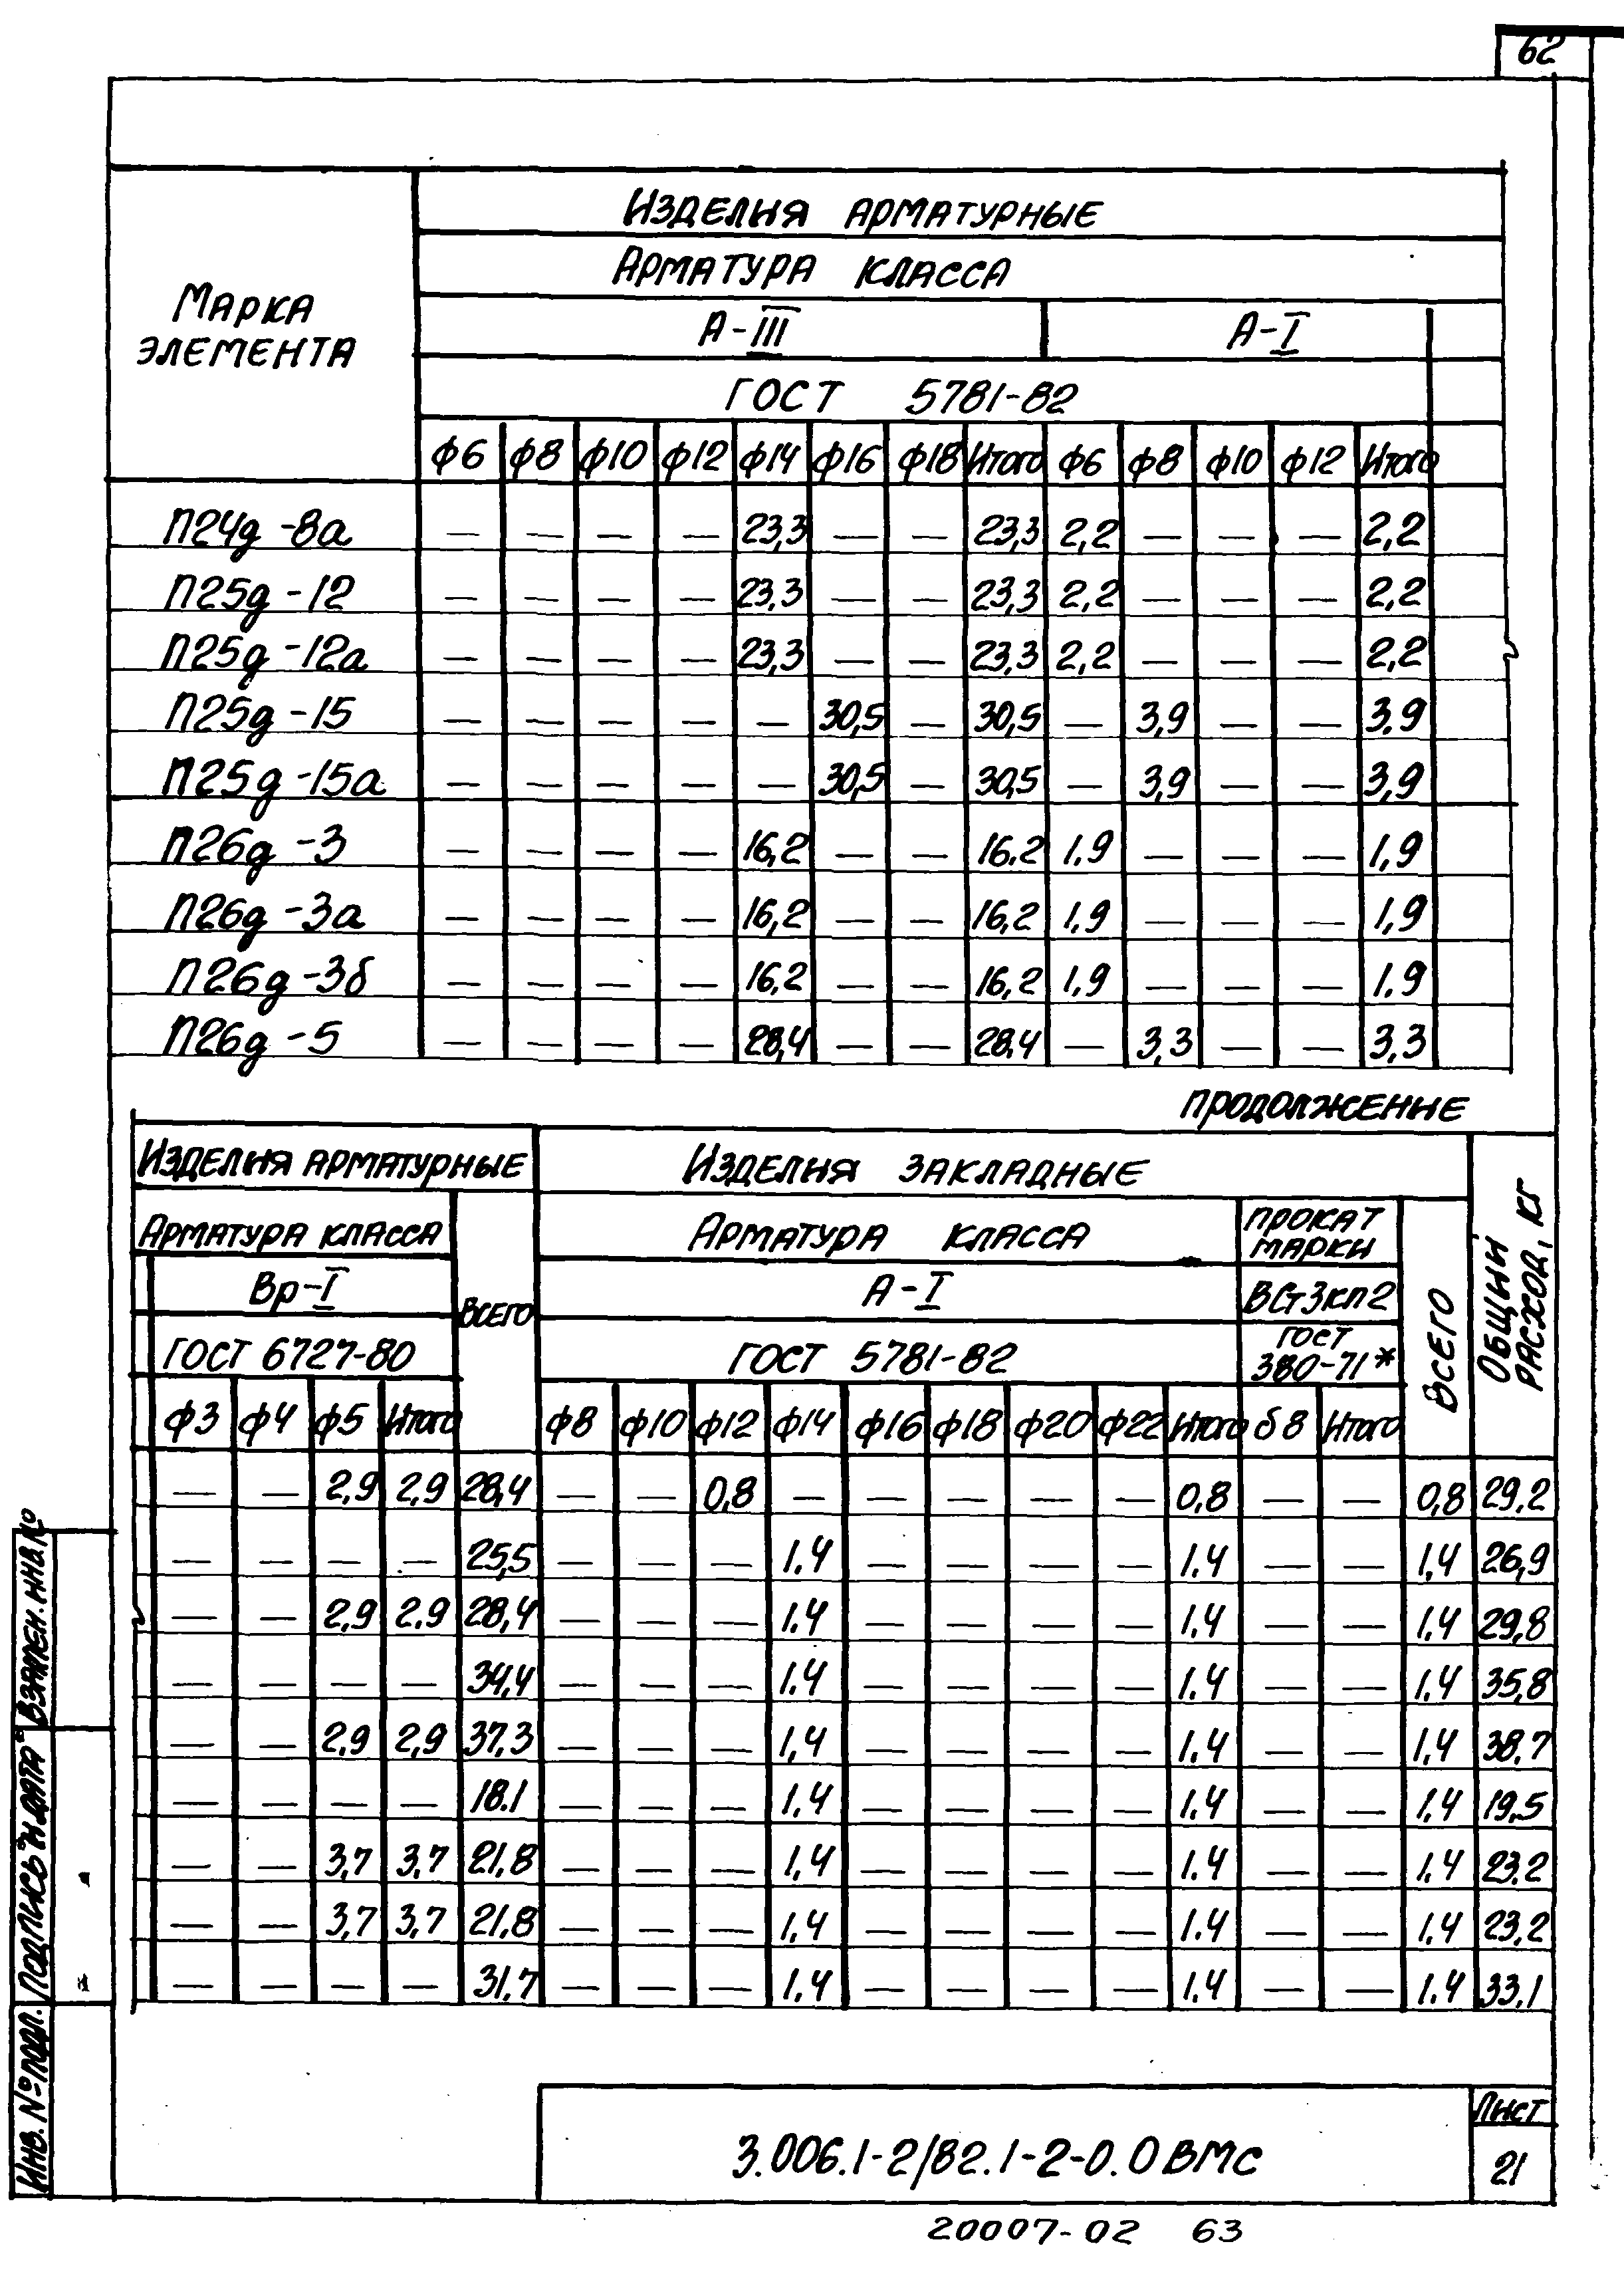 62
Изделия арматурные
Арматура класса
Марка элемента
А-III А-I
ГОСТ 5781-82
ф6 ф8 ф10 ф12 ф14 ф16 ф18 Итого ф6 ф8 ф10 ф12 Итого
П24д-8а — — — — 23,3 — — 23,3 2,2 — — — 2,2
П25д-12 — — — — 23,3 — — 23,3 2,2 — — — 2,2
П25д-12а — — — — 23,3 — — 23,3 2,2 — — — 2,2
П25д-15 — — — — — 30,5 — 30,5 — 3,9 — — 3,9
П25д-15а — — — — — 30,5 — 30,5 — 3,9 — — 3,9
П26д-3 — — — — 16,2 — — 16.2 1,9 — — — 1,9
П26д-3а — — — — 16,2 — — 16,2 1,9 — — — 1,9
П26д-3б — — — — 16,2 — — 16,2 1,9 — — — 1,9
П26д-5 — — — — 28,4 — — 28,4 — 3,3 — — 3,3
продолжение
Изделия арматурные Изделия закладные Общий расход, кг
Арматура класса Всего Арматура класса прокат марки Всего
Вр-I А-I ВСт3кп2
ГОСТ 6727-80 ГОСТ 5781-82 ГОСТ 380-71*
ф3 ф4 ф5 Итого ф8 ф10 ф12 ф14 ф16 ф18 ф20 ф22 Итого б8 Итого
— — 2,9 2,9 28,4 — — 0,8 — — — — — 0,8 — — 0,8 29,2
— — — — 25,5 — — — 1,4 — — — — 1.4 — — 1,4 26,9
— — 2,9 2.9 28,4 — — — 1.4 — — — — 1.4 — — 1.4 29,8
— — — — 34,4 — — — 1.4 — — — — 1.4 — — 1.4 35,8
— — 2,9 2,9 37,3 — — — 1,4 — — — — 1,4 — — 1,4 38,7
— — — — 18.1 — — — 1,4 — — — — 1.4 — — 1,4 19,5
— — 3,7 3,7 21,8 — — — 1,4 — — — — 1.4 — — 1,4 23.2
— — 3,7 3,7 21,8 — — — 1,4 — — — — 1.4 — — 1,4 23,2
— — — — 31,7 — — — 1,4 — — — — 1.4 — — 1.4 33,1
Инв. № подл. Подпись и дата Взамен. инв №
3.006.1-2/82.1-2-0.0ВМС
Лист
21
20007-02 63